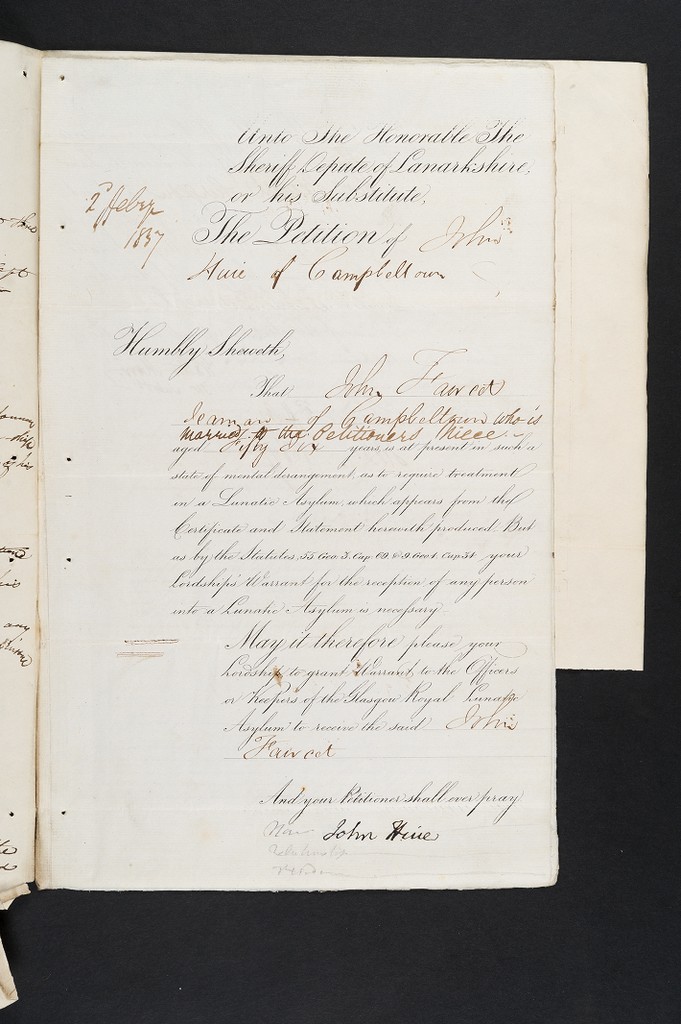 Unto The Honorable The
Sheriff Depute of Lanarkshire,
or his Substitute,
2d Febry
1837
The Petition of John
Huie of Campbeltown
Humbly Sheweth,
That John Fawcet
Seaman of Campbeltown who is
married to the Petitioners Niece
aged Fifty Six years, is at present in such a
state of mental derangement, as to require treatment
in a Lunatic Asylum, which appears from the
Certificate and Statement herewith produced. But
as by the Statutes, 55 Geo. 3. Cap. 69. & 9. Geo 4. Cap. 34. your
Lordship's Warrant for the reception of any person
into a Lunatic Asylum is necessary.
May it therefore please your
Lordship, to grant Warrant, to the Officers
or Keepers of the Glasgow Royal Lunatic
Asylum to receive the said John
Fawcet
And your Petitioner shall ever pray
John Huie
Relationship